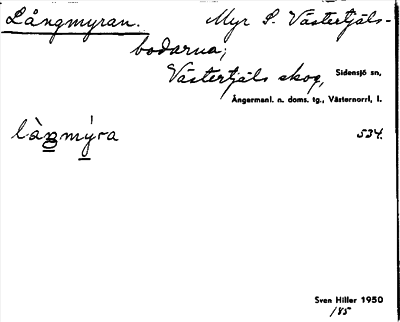 Långmyran. Myr S. Västertjäls-
bodarna;
Västertjäls skog, Sidensjö sn,
Ångermanl. n. doms. tg., Västernorrl, l.
làŋmýra 534.
Sven Hiller 1950
185